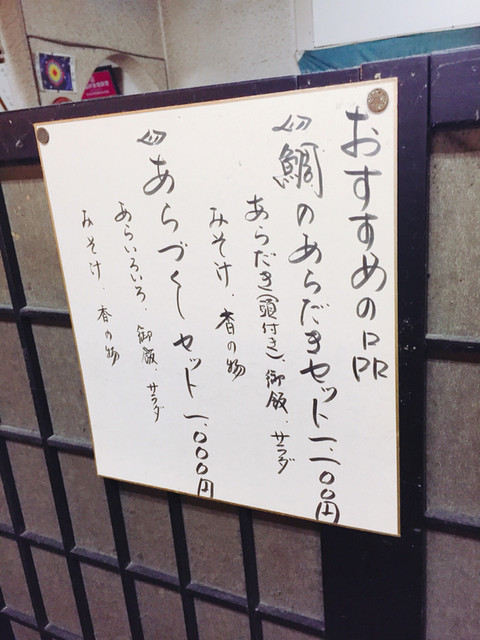 おすすめの品
鯛のあらだきセット一、一〇〇円
あらだき(頭付き)、御飯、サラダ
みそ汁、香の物
あらづくしセット一、〇〇〇円
あらいろいろ、御飯、サラダ
みそ汁、香の物